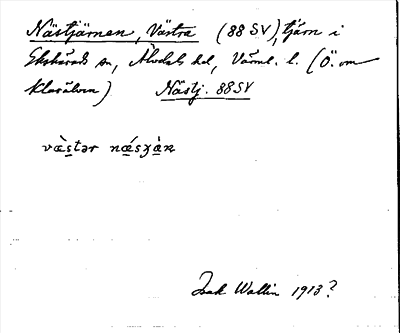 Nästjärnen, Västra (88 SV), tjärn i
Ekshärads sn, Älvdals hd, Värml. l. (Ö. om
Klarälven) Nästj. 88 SV
Isak Wallin 1913?